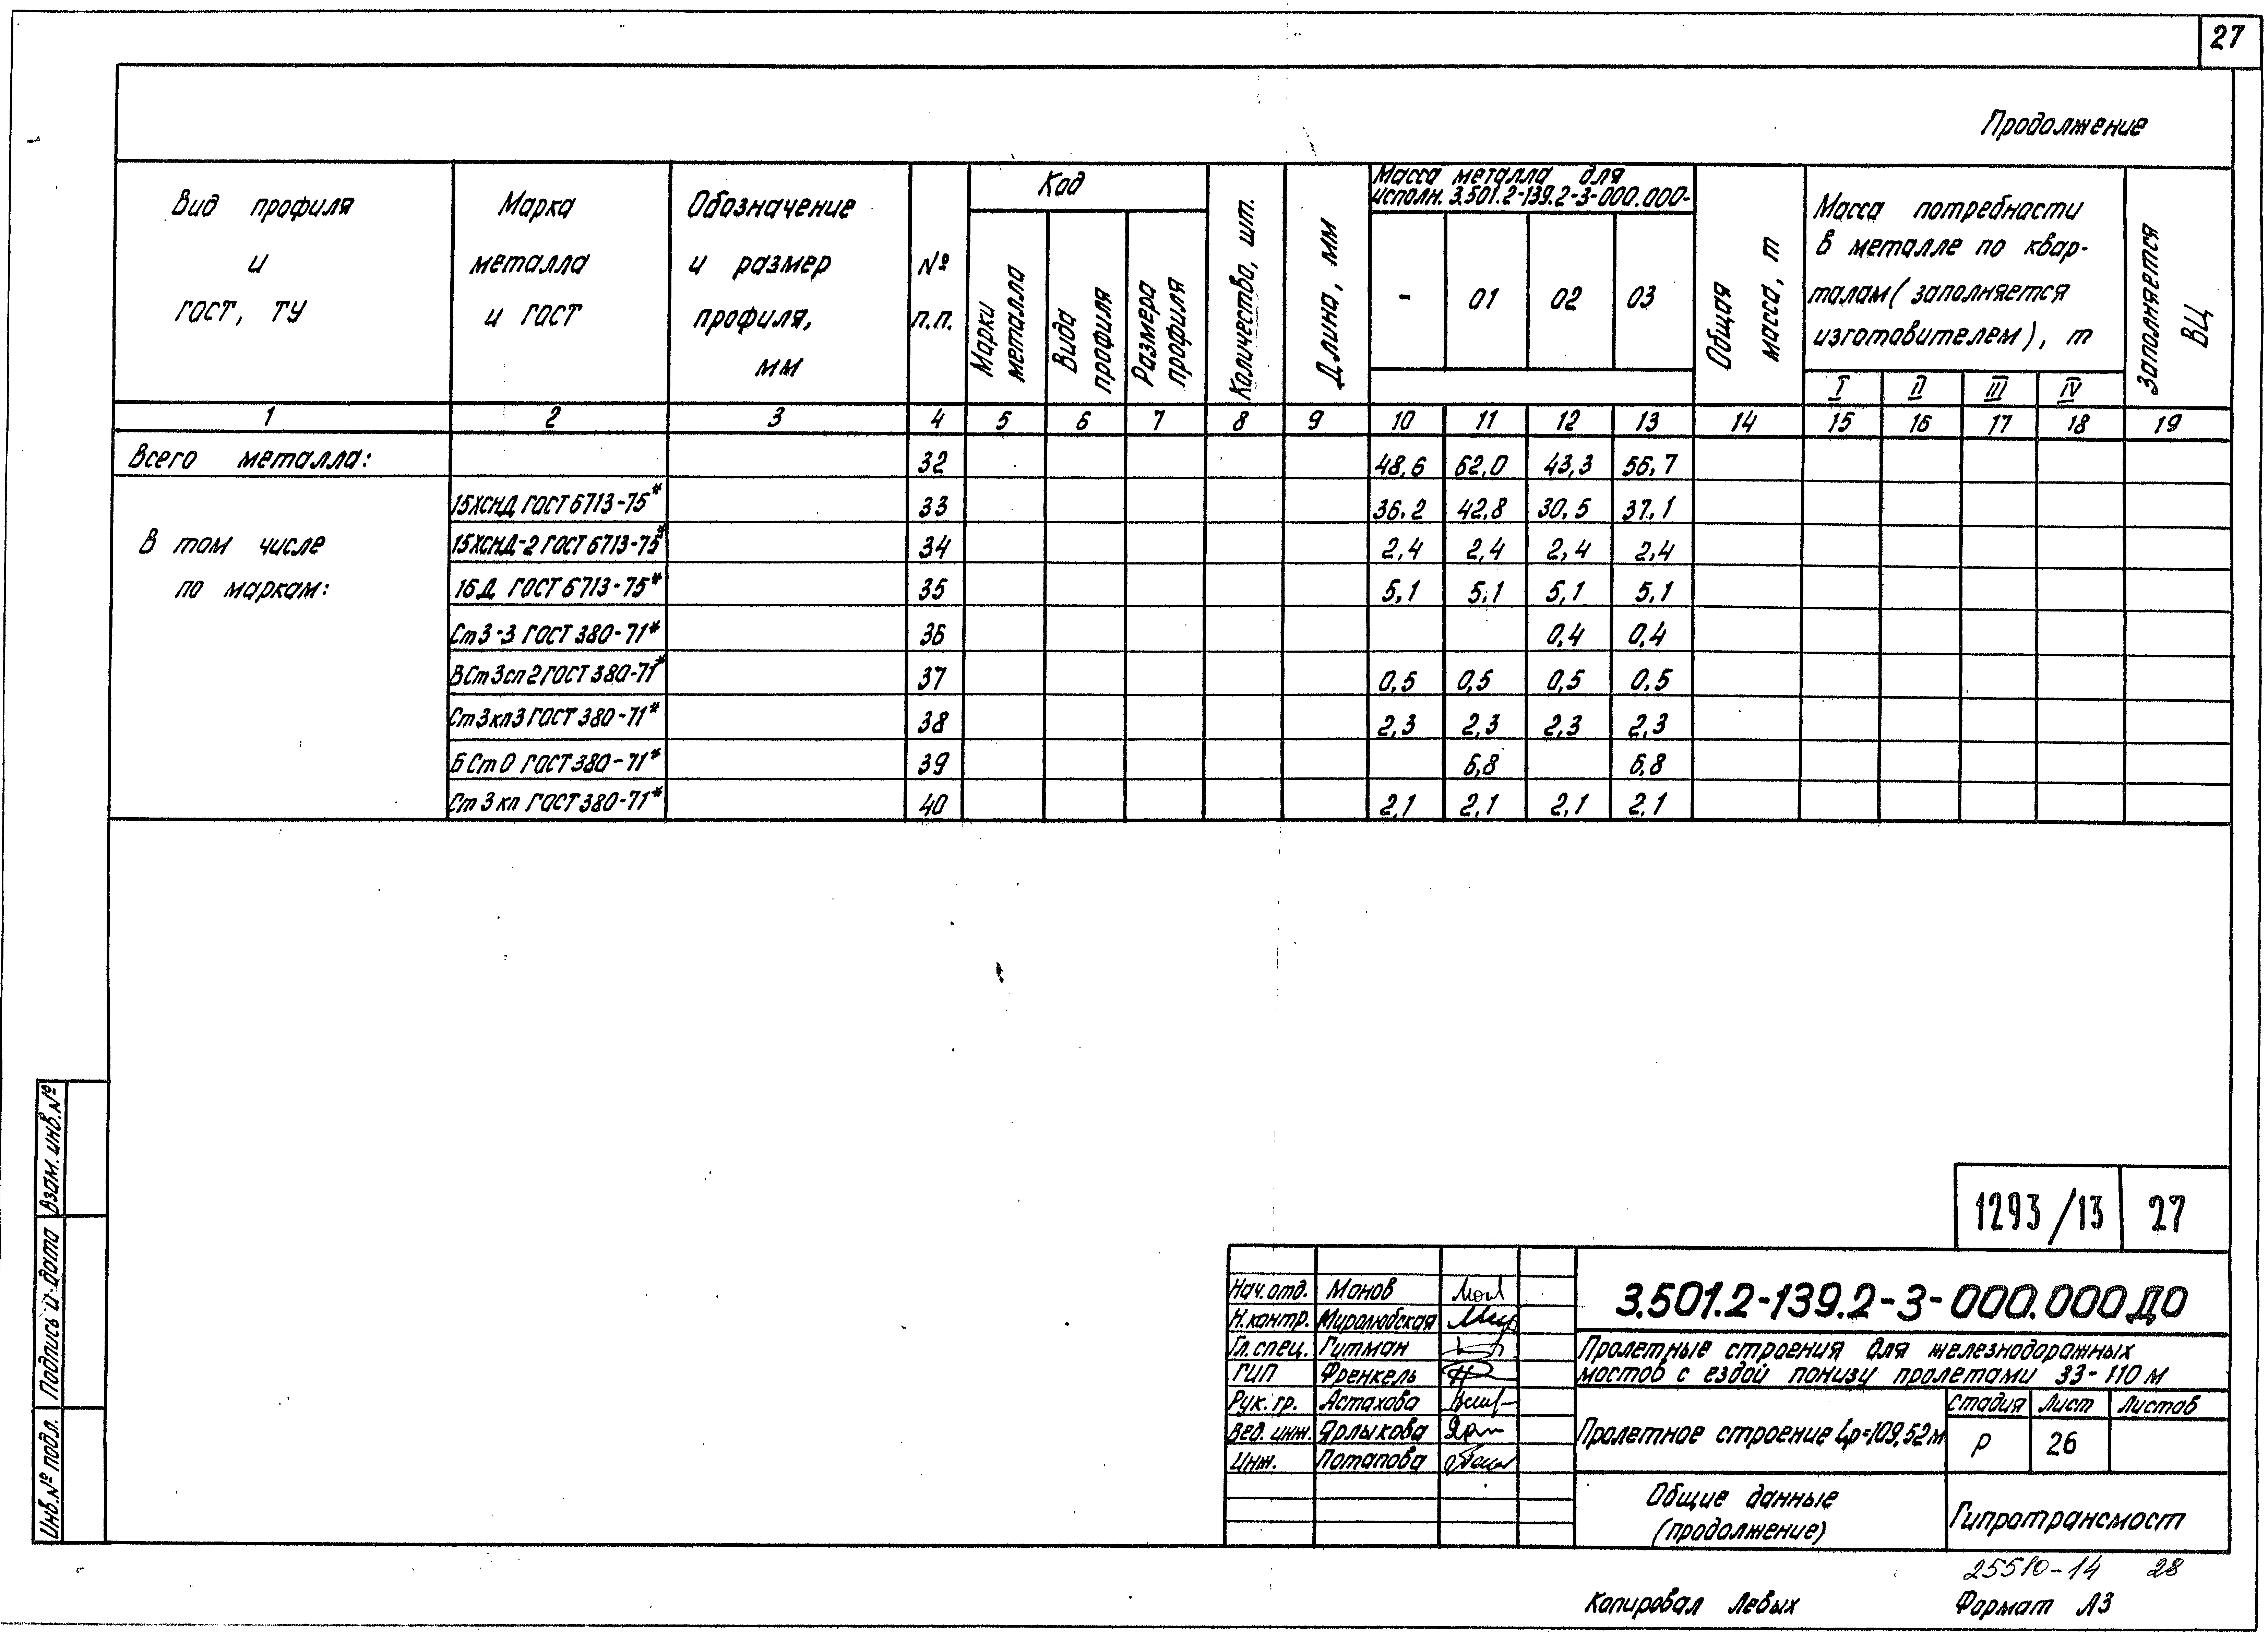 27
Продолжение
Вид профиля
и
ГОСТ, ТУ
Марка
металла
и ГОСТ
Обозначение
и размер
профиля,
мм
№
п.п.
Код
Марки
металла
Вида
профиля
Размера
профиля
Количество, шт.
Длина, мм
Масса металла для
исполн. 3.501.2-139.2-3-000.000-
- 01 02 03
Общая
масса, т
Масса потребности
в металле по квар-
талам (заполняется
изготовителем), т
I II III IV
Заполняется
ВЦ
1 2 3 4 5 6 7 8 9 10 11 12 13 14 15 16 17 18 19
Всего металла: 32 48,6 62,0 43,3 56,7
В том числе
по маркам:
15ХСНД ГОСТ 6713-75* 33 36,2 42,8 30,5 37,1
15ХСНД-2 ГОСТ 6713-75* 34 2,4 2,4 2,4 2,4
16Д ГОСТ 6713-75* 35 5,1 5,1 5,1 5,1
Ст3-3 ГОСТ 380-71* 36 0,4 0,4
ВСт3сп2 ГОСТ 380-71* 37 0,5 0,5 0,5 0,5
Ст3кп3 ГОСТ 380-71* 38 2,3 2,3 2,3 2,3
БСт0 ГОСТ 380-71* 39 6,8 6,8
Ст3кп ГОСТ 380-71* 40 2,1 2,1 2,1 2,1
Взам. инв. №
Подпись и дата
Инв. № подл.
1293/13 27
Нач. отд. Монов
Н. контр. Миролюбская
Гл. спец. Гутман
ГИП Френкель
Рук. гр. Астахова
Вед. инж. Ярлыкова
Инж. Потапова
3.501.2-139.2-3-000.000 ДО
Пролетные строения для железнодорожных
мостов с ездой понизу пролетами 33-110 м
Пролетное строение Lр=109,52м
Стадия Лист Листов
Р 26
Общие данные
(продолжение)
Гипротрансмост
25510-14 28
Копировал Левых
Формат А3